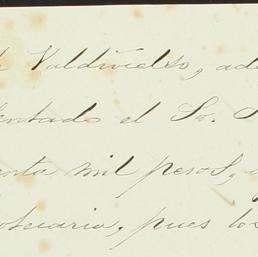 Valdivielso, ad
entado el Sr. S
enta mil pesos, y
otecaria, pues los